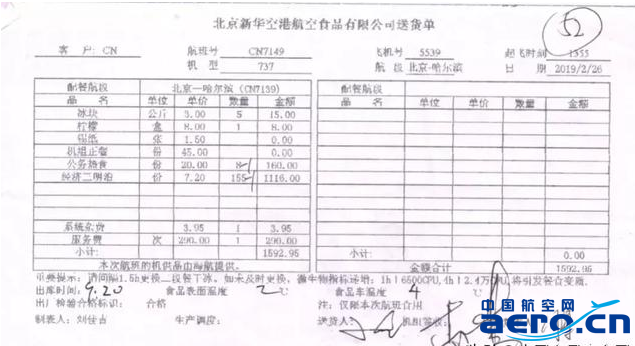 北京新华空港航空食品有限公司送货单
52
客 户: CN 航班号 CN7149 飞机号 5539 起飞时刻 1355
机 型 737 航 段 北京-哈尔滨 日 期 2019/2/26
配餐航段 北京—哈尔滨（CN7139） 配餐航段
品 名 单位 单价 数量 金额 品 名 单位 单价 数量 金额
冰块 公斤 3.00 5 15.00
柠檬 盒 8.00 1 8.00
锡纸 张 1.50 0.00
机组正餐 份 45.00 0.00
公务热食 份 20.00 8 160.00
经济三明治 份 7.20 155 1116.00
系统杂费 3.95 1 3.95
服务费 次 290.00 1 290.00
小计: 1592.95 小计: 0.00
本次航班的机供品由海航提供。 金额合计 1592.95
重要提示: 1.5h更换二段餐干冰，如未及时更换，微生物指标递增: 1h 6500CPU, 将引发餐食变质。
出库时间: 9.20 食品表面温度 2℃ 食品车温度 4 ℃
出厂检验合格标识: 合格 注: 仅限本次航班食用
制表人: 刘佳音 生产调度: 送货人: 机组签收:
中国航空网
aero.cn